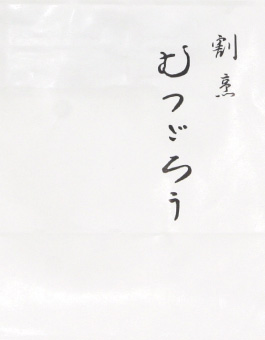 割烹
むつごろう